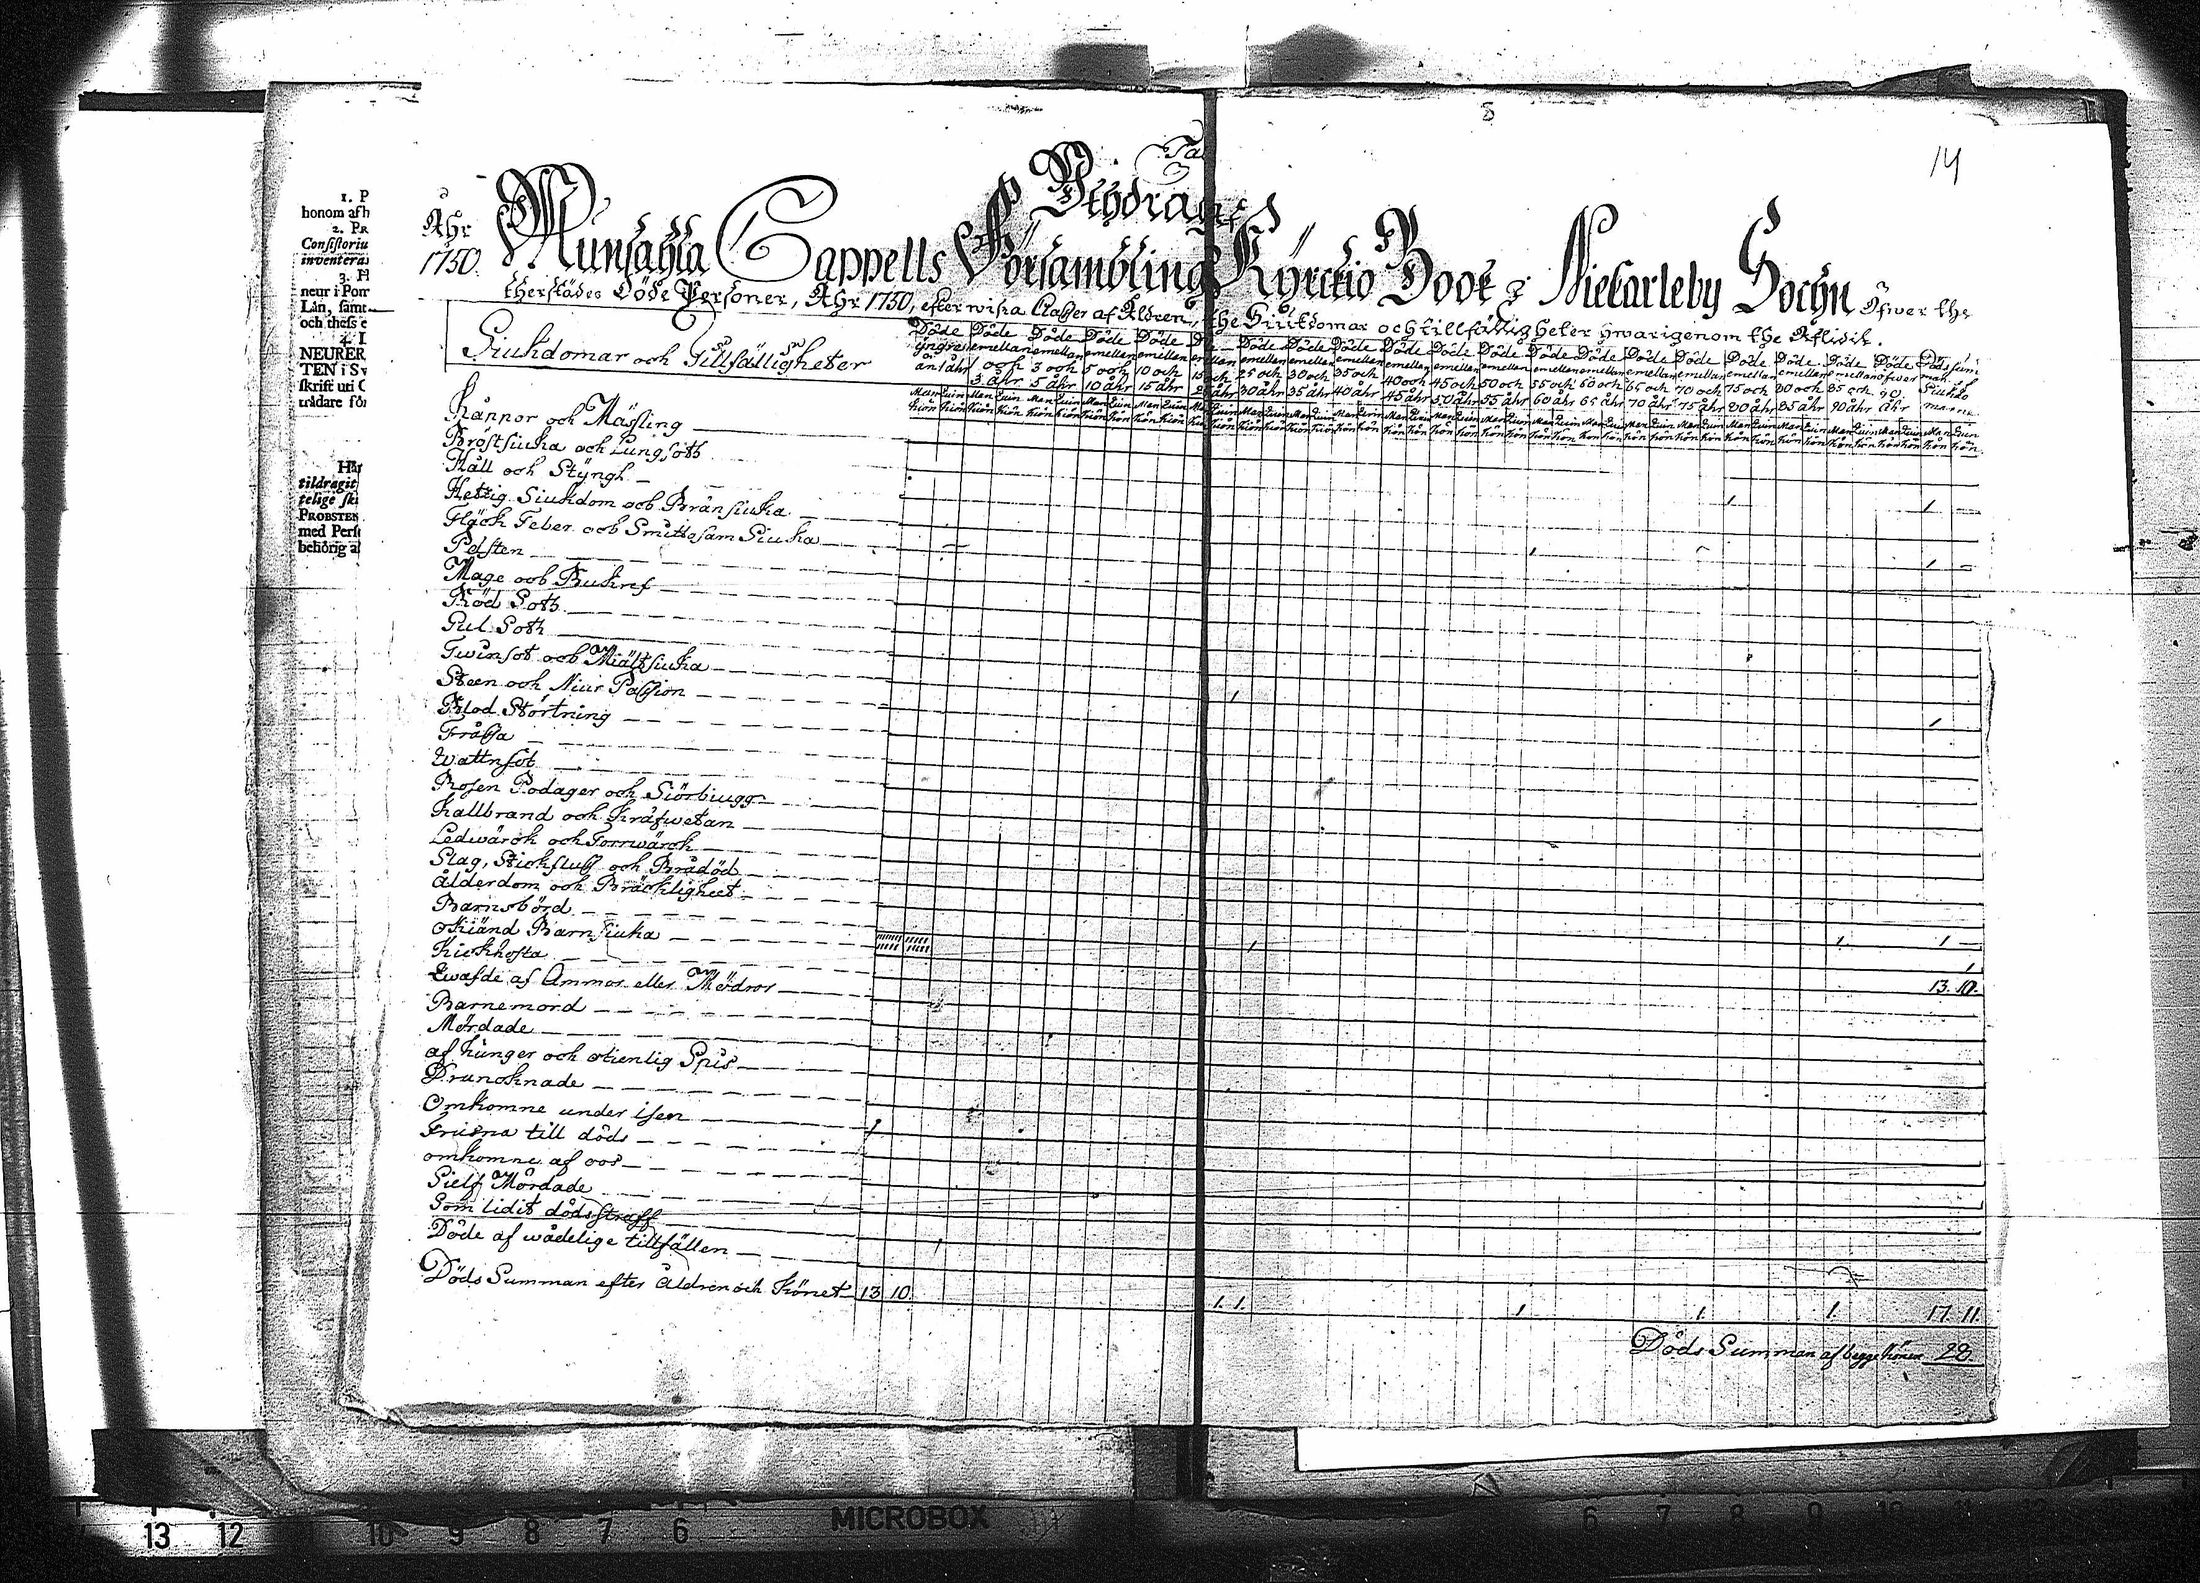 8
14
1. P
honom afh
2. PR
Consistoriu
inventera
3. H
neur i Pom
Län, samt
och thess e
4. I
NEURER
TEN i Sv
skrift uti C
trädare för
Här
tildragit
telige ski
PROBSTEN
med Pers
behörig a
Ta
Uthdrag af
Åhr
1750.
Munsahla Cappells Församblings Kyrckio Book i Niekarleby Sochn Öfwer the
therstädes Döde Personer, Åhr 1750, efter wissa Classer af Åldren, the Siukdomar och tillfälligheter hwarigenom the Aflidit.
Siukdomar och Tillfälligheter
Döde Döde Döde Döde Döde Döde Döde Döde Döde Döde Döde Döde Döde Döde Döde Döde Döde Döde Döde
yngre emellan emellan emellan emellan emellan emellan emellan emellan emellan emellan emellan emellan emellan emellan emellan emellan emellan emellan öfwer
än 1 åhr 1 och 3 och 5 och 10 och 15 och 25 och 30 och 35 och 40 och 45 och 50 och 55 och 60 och 65 och 70 och 75 och 80 och 85 och 90 Siukdo
3 åhr 5 åhr 10 åhr 15 åhr 30 åhr 35 åhr 40 åhr 45 åhr 50 åhr 55 åhr 60 åhr 65 åhr 70 åhr 75 åhr 80 åhr 85 åhr 90 åhr åhr marna
Kåppor och Mässling
Bröstsiuka och Lungsoth
Håll och Styngh
Hetzig Siukdom och Bränsiuka 1 1 —
Fläck Feber och Smittosam Siuka
Pesten 1 —
Mage och Bukref
Röd Soth
Gul Soth
Twinsot och Miältsiuka
Steen och Niur Passion 1
Blod Störtning 1
Fråssa
Wattnsot
Rosen Podager och Siörbiugg
Kallbrand och Kräfwetan
Ledwärck och Torrwärck
Slag, Stickfluss och Brådöd
Ålderdom och Bräckligheet
Barnsbörd
Okiänd Barnsiuka 1 1 1 —
Kickhosta 1
Qwafde af Ammor eller Mödror 13. 10.
Barnemord
Mördade
af hunger och otienlig Spis
Druncknade
Omkomne under isen
Frusna till döds
omkomne af oos
Sielf Mördade
Som lidit dödsstraff
Döde af wådelige tillfällen
Döds Summan efter Åldren och Könet 13 10. 1. 1. 1 1. 1. 17. 11.
Döds Summan af begge Könen 28.
MICROBOX
13 12 10 9 8 7 6 6 7 8 9 10 11